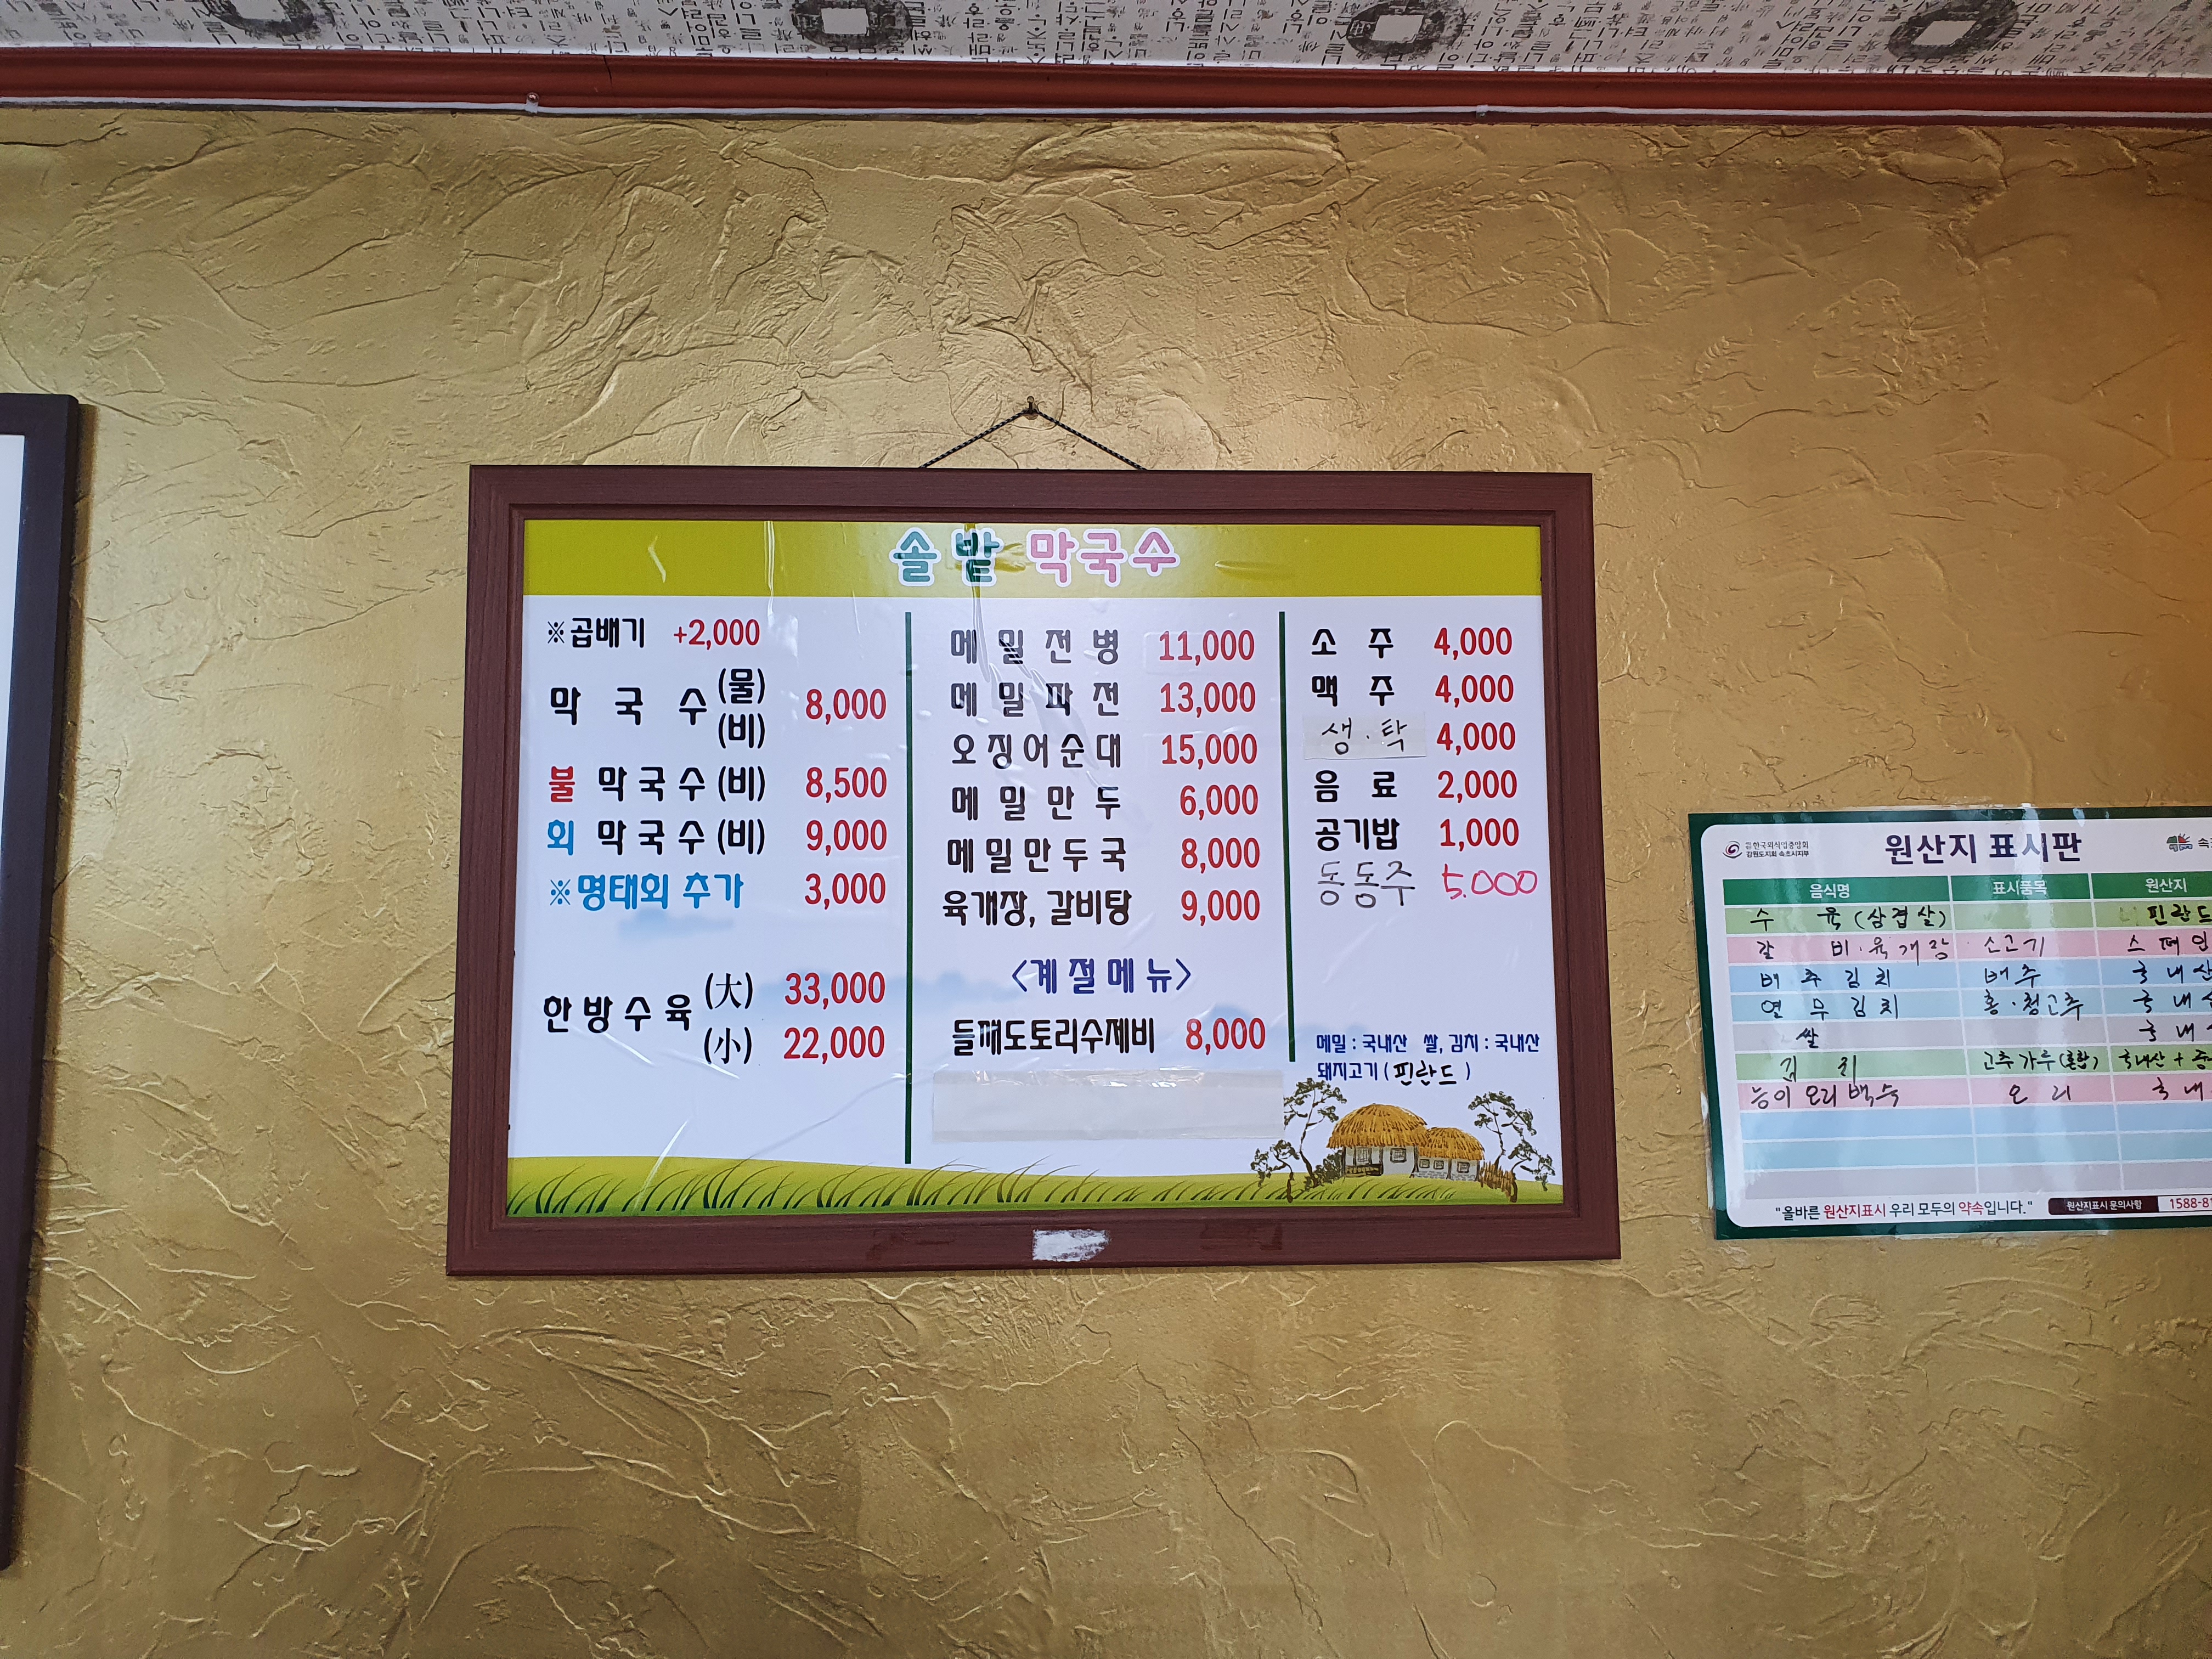 솔밭 막국수
※곱배기 +2,000
막국수 (물) (비) 8,000
불 막국수 (비) 8,500
회 막국수 (비) 9,000
※명태회 추가 3,000
한방수육 (大) 33,000
(小) 22,000
메밀전병 11,000
메밀파전 13,000
오징어순대 15,000
메밀만두 6,000
메밀만두국 8,000
육개장, 갈비탕 9,000
<계절메뉴>
들깨도토리수제비 8,000
소주 4,000
맥주 4,000
생·탁 4,000
음료 2,000
공기밥 1,000
동동주 5.000
메밀 : 국내산 쌀, 김치 : 국내산
돼지고기 ( 핀란드 )
한국외식업중앙회
강원도지회 속초시지부
원산지 표시판
속
음식명 표시품목 원산지
수육 (삼겹살) 핀란드
갈비·육개장 소고기 스페인
배추김치 배추 국내산
연무김치 홍·청고추 국내
쌀 국내
김치 고추가루 (혼합) 국내산 +
능이오리백숙 오리 국내
"올바른 원산지표시 우리 모두의 약속입니다."
원산지표시 문의사항 1588-81